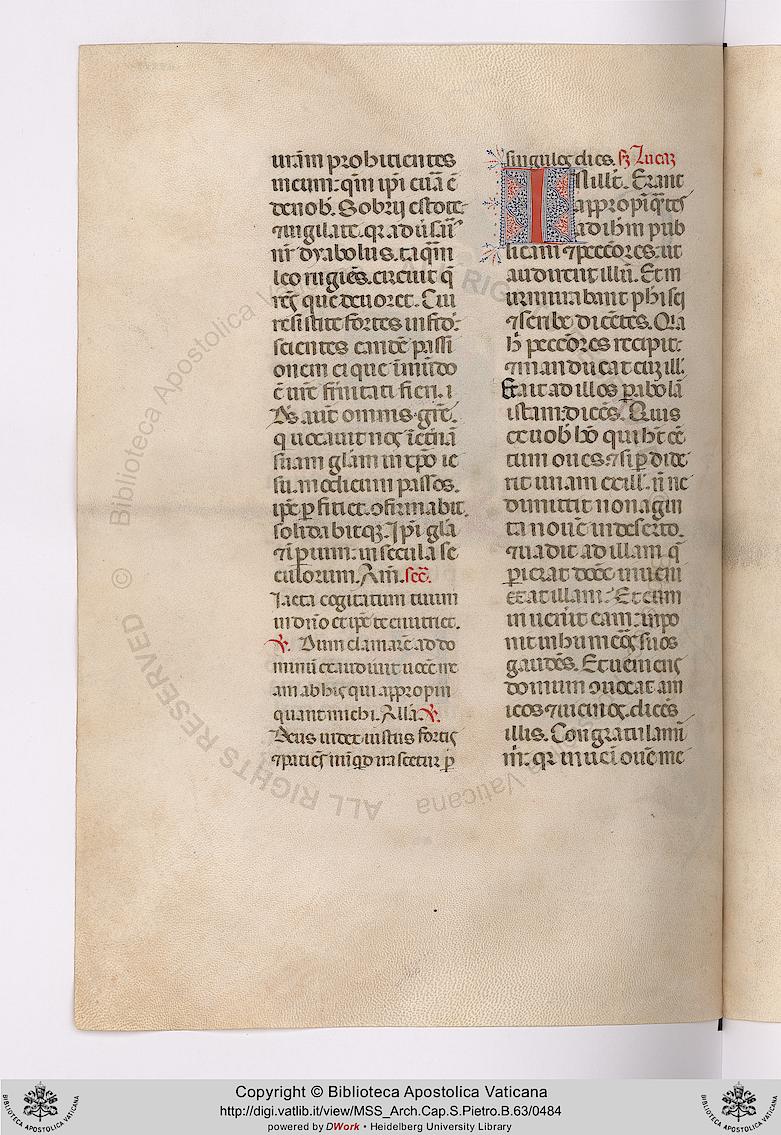 uram prohicientes
in eum: qm̄ ipi cura ē
de nob̄. Sobrij estote
⁊ vigilate. qr aduˀsariˀ
nr̄ dyabolus. taqm̄
leo rugiēs. circuit q̄
rēs que deuoret. Cui
resistite fortes in fide:
scientes eandē passi
onem ei que ī mūdo
ē urē frn̄itati fieri.
Ds̄. aut̄ omnis grē.
q uocauit nos ī etnā
suam gl̄am in xp̄o ie
su. modicum passos.
ipē ꝑficiet. ɔfirmabit.
solidabitqꝫ. Ipi gl̄a
⁊ īperium: in secula se
culorum. Am̄. sec̄.
Iacta cogitatum tuum
in dn̄o et ipē te enutriet.
℣. Dum clamarē ad do
minū exaudiuit uocē me
am ab his qui appropin
quant michi. Alla ℣.
Deus iudex iustus fortis
⁊ patiēs nūqd irascetur ꝑ
singulos dies. sꝫ lucaꝫ
In ill̄. t̄. Erant
appropīq̄tes
ad ihm̄ pub
licani ⁊ pecc̄ores: ut
audirent illū. Et m
urmurabant phisei
⁊ scribe dicētes. Qia
h̄ pecc̄ores recipit:
⁊ manducat cuꝫ ill̄.
Et ait ad illos ꝑabolā
istam: dicēs. Quis
ex uob̄ hō qui ht̄ cē
tum oues. ⁊ si ꝑdide
rit unam ex ill̄. n̄ne
dimittit nonagin
ta nouē in deserto.
⁊ uadit ad illam q̄
ꝑierat donec inueni
et illam: Et cum
inuenit eam: inpo
nit in humeros suos
gaudēs. Et ueniens
domum ɔuocat am
icos ⁊ uicinos. dicēs
illis. Congratulami
m̄: qr inueni ouē me
ALL RIGHTS RESERVED © Biblioteca Apostolica Vaticana
Copyright © Biblioteca Apostolica Vaticana
http://digi.vatlib.it/view/MSS_Arch.Cap.S.Pietro.B.63/0484
powered by DWork • Heidelberg University Library
BIBLIOTECA APOSTOLICA VATICANA
BIBLIOTECA APOSTOLICA VATICANA